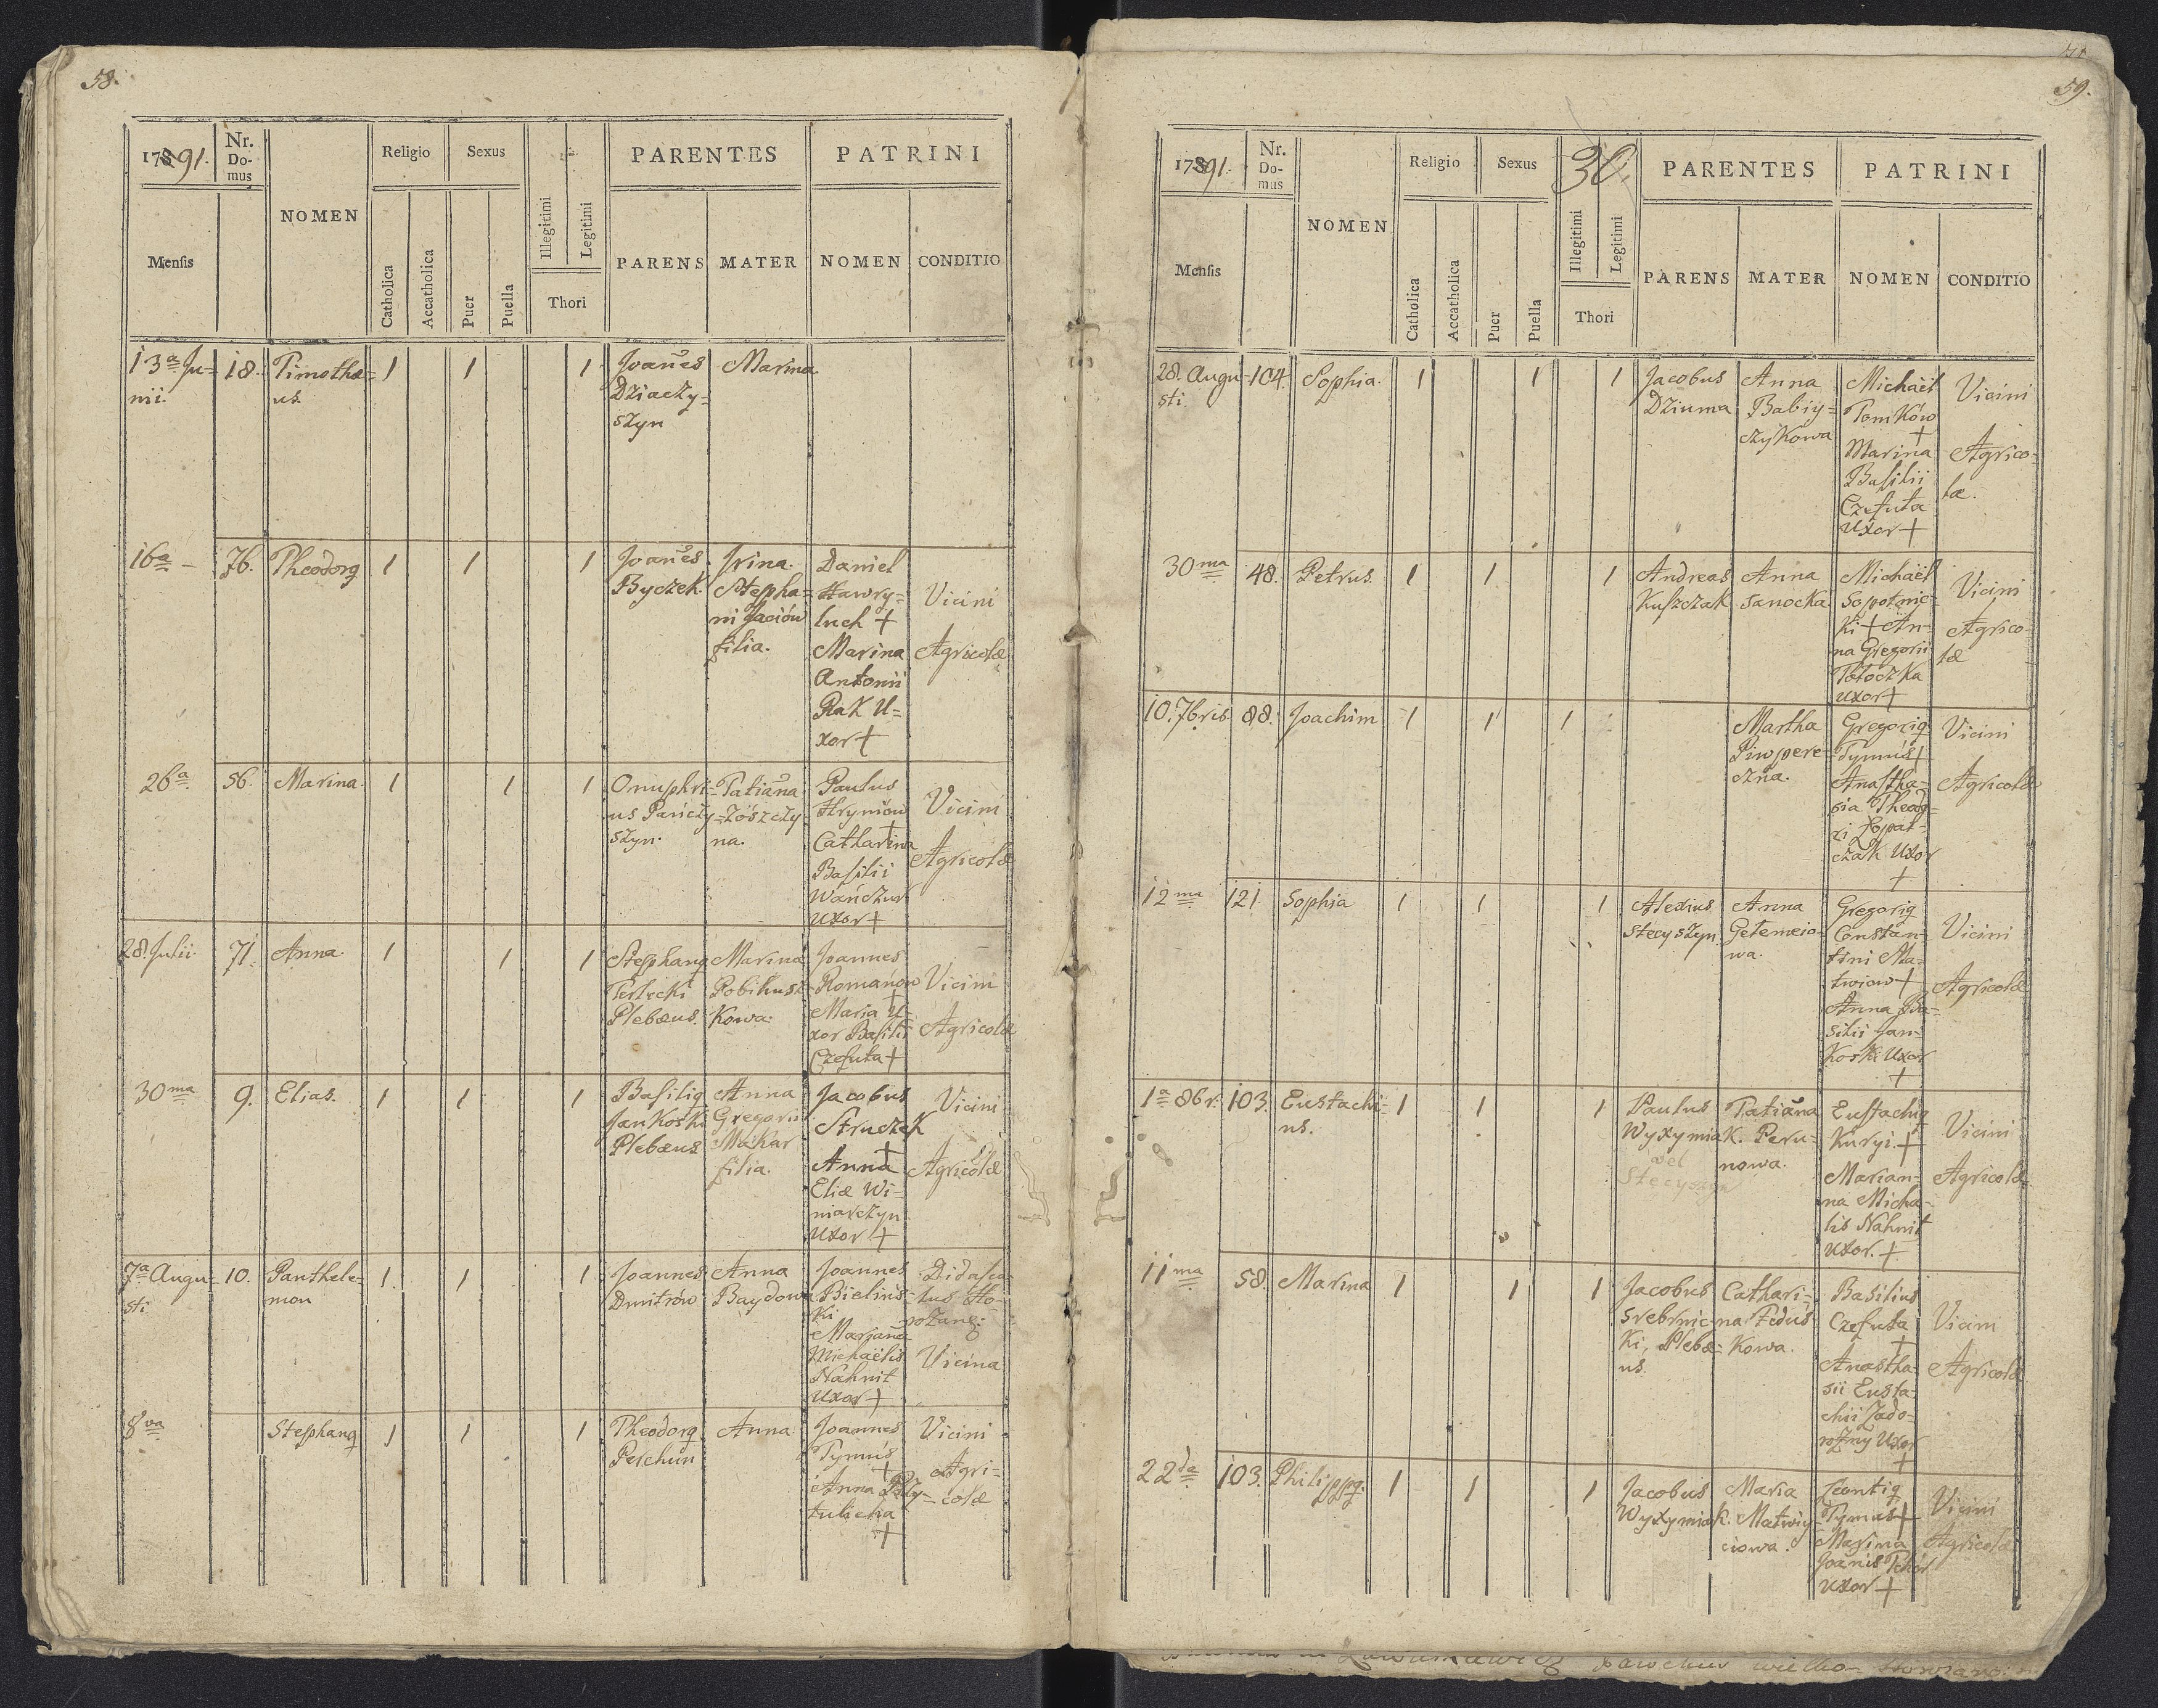 58.
17891.
Nr. Domus
NOMEN
Religio
Sexus
PARENTES
PATRINI
Mensis
Catholica
Accatholica
Puer
Puella
Illegitimi
Legitimi
Thori
PARENS
MATER
NOMEN
CONDITIO
13a Ju-
nii.
18.
Timothæ-
us.
1 1 1
Joañes
Dziaczy-
szyn
Marina
16a –
76.
Theodorq
1 1 1
Joañes
Byczek.
Irina
Stepha-
ni Jaciów
filia.
Daniel
Hawry-
luch +
Marina
Antonii
Rak U-
xor +
Vicini
Agricolæ
26a
56.
Marina.
1 1 1
Onuphri-
us Pańczy-
szyn.
Tatiana
Zószczy-
na.
Paulus
Hrymów
+
Catharina
Basilii
Wańczur
Uxor +
Vicini
Agricolæ
28. Julii.
71.
Anna.
1 1 1
Stephanq
Terlecki
Plebæus.
Marina
Pobihusz-
Kowa.
Joannes
Románow
+
Maria U-
xor Basilii
Czefuta +
Vicini
Agricolæ
30ma
9.
Elias.
1 1 1
Basiliq
Jankoski
Plebæus
Anna
Gregorii
Makar
filia.
Jacobus
Struczek
+
Anna
Eliæ Wi-
niarczyn
Uxor +
Vicini
Agricolæ
7a Augu-
sti
10.
Panthele-
mon
1 1 1
Joannes
Dmitrów
Anna
Baydowa
Joannes
Bielins-
ki
Marjana
Michaëlis
Nahnit
Uxor +
Didasca-
lus Ho-
rożanq.
Vicina
8va
Stephanq
1 1 1
Theodorq
Pelchun
Anna.
Joannes
Tymuś
+
Anna
tulicha
+
Vicini
Agri-
colæ
59.
17891.
Nr. Domus
NOMEN
Religio
Sexus
30.
PARENTES
PATRINI
Mensis
Catholica
Accatholica
Puer
Puella
Illegitimi
Legitimi
Thori
PARENS
MATER
NOMEN
CONDITIO
28. Augu-
sti.
104.
Sophia.
1 1 1
Jacobus
Dziuma
Anna
Babiy-
czykowa
Michaël
Tomków
+
Marina
Basilii
Czefuta
Uxor +
Vicini
Agrico-
læ.
30ma
48.
Petrus.
1 1 1
Andreas
Kuszczak
Anna
Sanocka.
Michaël
Sopotnic-
ki + An-
na Gregorii
Tołoczka
uxor +
Vicini
Agrico-
læ
10. 7bris
88.
Joachim
1 1 1
Martha
Piwpere-
czna.
Gregoriq
Tymuś +
Anastha-
sia Theod-
ri Łopat-
czak Uxor
+
Vicini
Agricolæ
12ma
121.
Sophia
1 1 1
Alexius
Stecyszyn
Anna
Getemeio-
wa.
Gregoriq
Constan-
tini Ma-
twiow +
Anna Ba-
silii Jan-
koski Uxor
+
Vicini
Agricolæ
1a 8br.
103.
Eustachi-
us.
1 1 1
Paulus
Wyxymiak.
vel
Stecyszyn
Tatiana
Peru-
nowa.
Eustachiq
Kuryi. +
Marian-
na Micha-
lis Nahnit
uxor. +
Vicini
Agricolæ
11ma
58.
Marina
1 1 1
Jacobus
Srebrnic-
ki, Plebæ-
us.
Cathari-
na Feduś-
kowa.
Basilius
Czefuta
+
Anastha-
sii Eusta-
chii Zado-
rożny Uxor
+
Vicini
Agricolæ
22da
103.
Philippq.
1 1 1
Jacobus
Wyxymiak.
Maria
Matwiy-
ciowa.
Leontiq
Tymus +
Marina
Joañis
uxor +
Vicini
Agricolæ